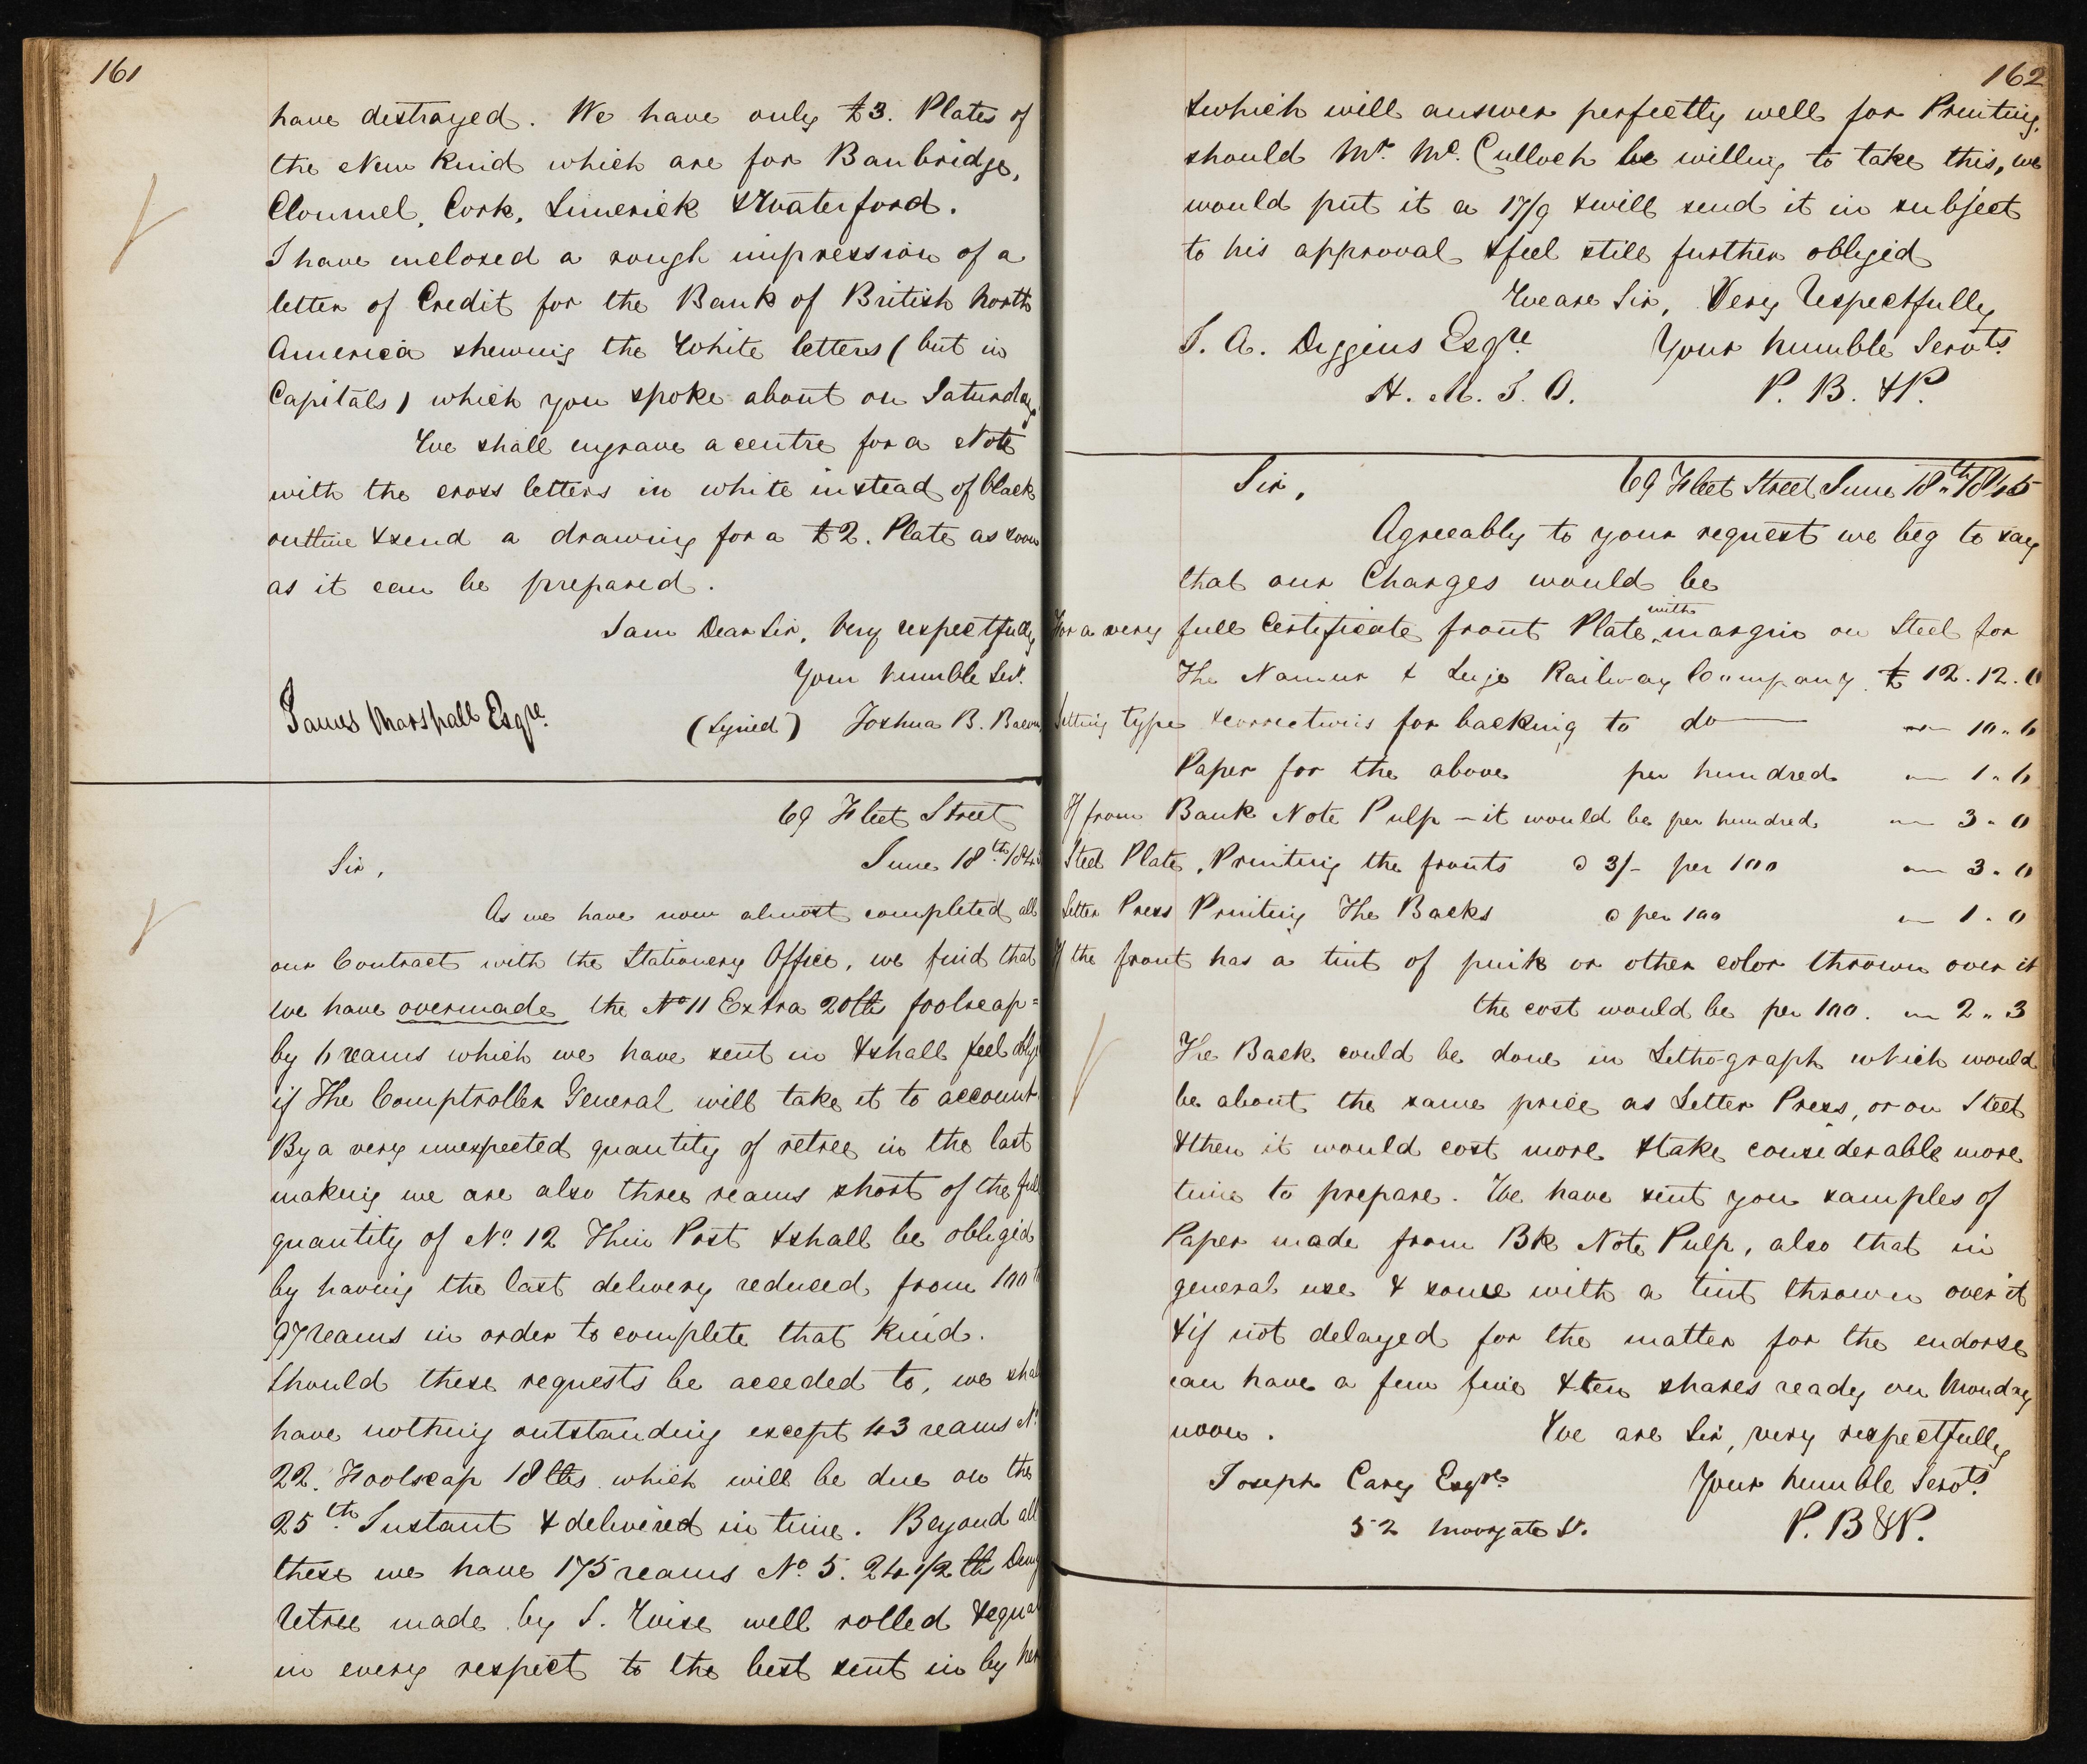 161
have destroyed. We have only £3. Plates of
the New kind which are for Banbridge,
Clonmel, Cork, Limerick & Waterford.
I have inclosed a rough impression of a
letter of Credit for the Bank of British North
America shewing the White letters (but in
Capitals) which you spoke about on Saturday.
We shall engrave a centre for a Note
with the cross letters in white instead of black
outline & send a drawing for a £2. Plate as soon
as it can be prepared.
I am Dear Sir, Very respectfully
Your humble Servt.
James Marshall Esqre.
(Signed) Joshua B. Bacon
69 Fleet Street
Sir, June 18th 184
As we have now almost completed all
our Contract with the Stationery Office, we find that
we have overmade the No 11 Extra 20 lb foolscap=
by 6 reams which we have sent in & shall feel oblig
if The Comptroller General will take it to account.
By a very unexpected quantity of retree in the last
making we are also three reams short of the full
quantity of No. 12 Thin Post & shall be obliged
by having the last delivery reduced from 100 t
97 reams in order to complete that kind.
Should these requests be acceded to, we shal
have nothing outstanding except 43 reams No
22. Foolscap 18 lbs. which will be due on the
25th Instant & delivered in time. Beyond all
these we have 175 reams No. 5. 24 1/2 lb Demy
Retree made by S. Wise well rolled & equal
in every respect to the best sent in by her
162
& which will answer perfectly well for Printing.
should Mr. Mc.Culloch be willing to take this, we
would put it a 17/9 & will send it in subject
to his approval & feel still further obliged
We are Sir, Very Respectfully
S. A. Diggins Esqre Your humble Servts.
H. M. S. O. P. B. & P.
Sir, 69 Fleet Street June 18th. 1845
Agreeably to your request we beg to say
that our Charges would be
For a very full Certificate front Plate with margin on Steel for
The Namur & Liege Railway Company. £ 12.12.0
Setting type & corrections for backing to do — " 10.6
Paper for the above per hundred " 1.6
If from Bank Note Pulp - it would be per hundred " 3.0
Steel Plate, Printing the fronts @ 3/- per 100 " 3.0
Letter Press Printing The Backs @ per 100 " 1.0
If the front has a tint of pink or other color thrown over it
the cost would be per 100. " 2.3
The Back could be done in Lithograph which would
be about the same price as Letter Press, or on Steel
& then it would cost more & take considerable more
time to prepare. We have sent you samples of
Paper made from Bk Note Pulp, also that in
general use & some with a tint thrown over it
& if not delayed for the matter for the endorse
can have a few five & ten shares ready on Monday
noon. We are Sir, very respectfully
Joseph Carey Esqre. Your humble Servts.
52 Moorgate St. P. B & P.